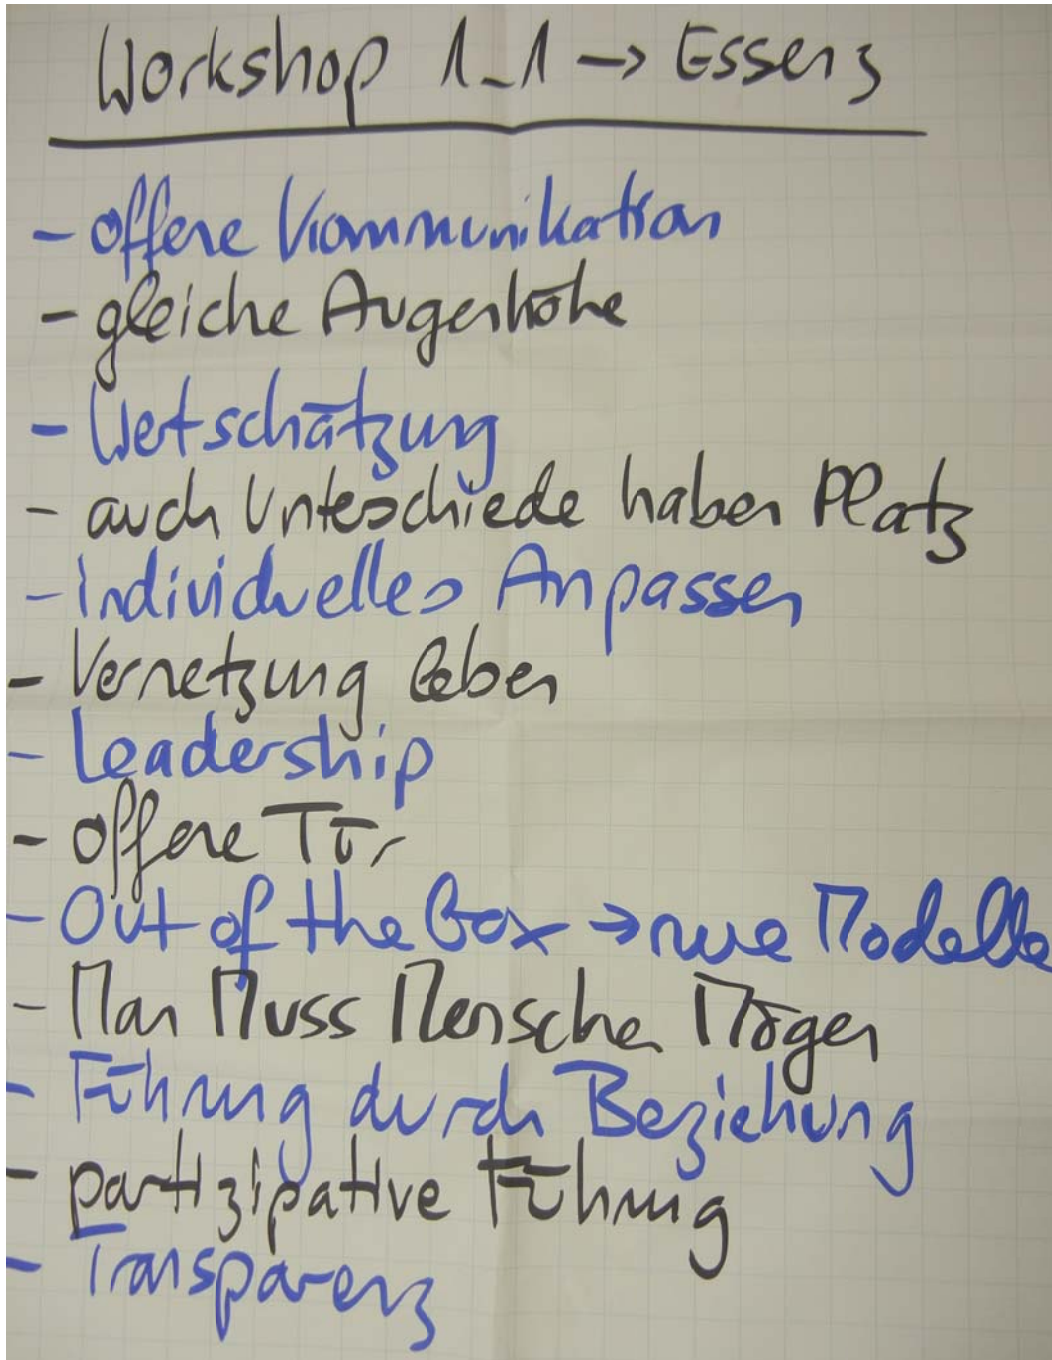 Workshop 1_1 → Essenz
- offene Kommunikation
- gleiche Augenhöhe
- Wertschätzung
- auch Unterschiede haben Platz
- individuelles Anpassen
- Vernetzung leben
- Leadership
- offene Tür
- Out of the Box → neue Modelle
- Man Muss Menschen Mögen
- Führung durch Beziehung
- partizipative Führung
- Transparenz